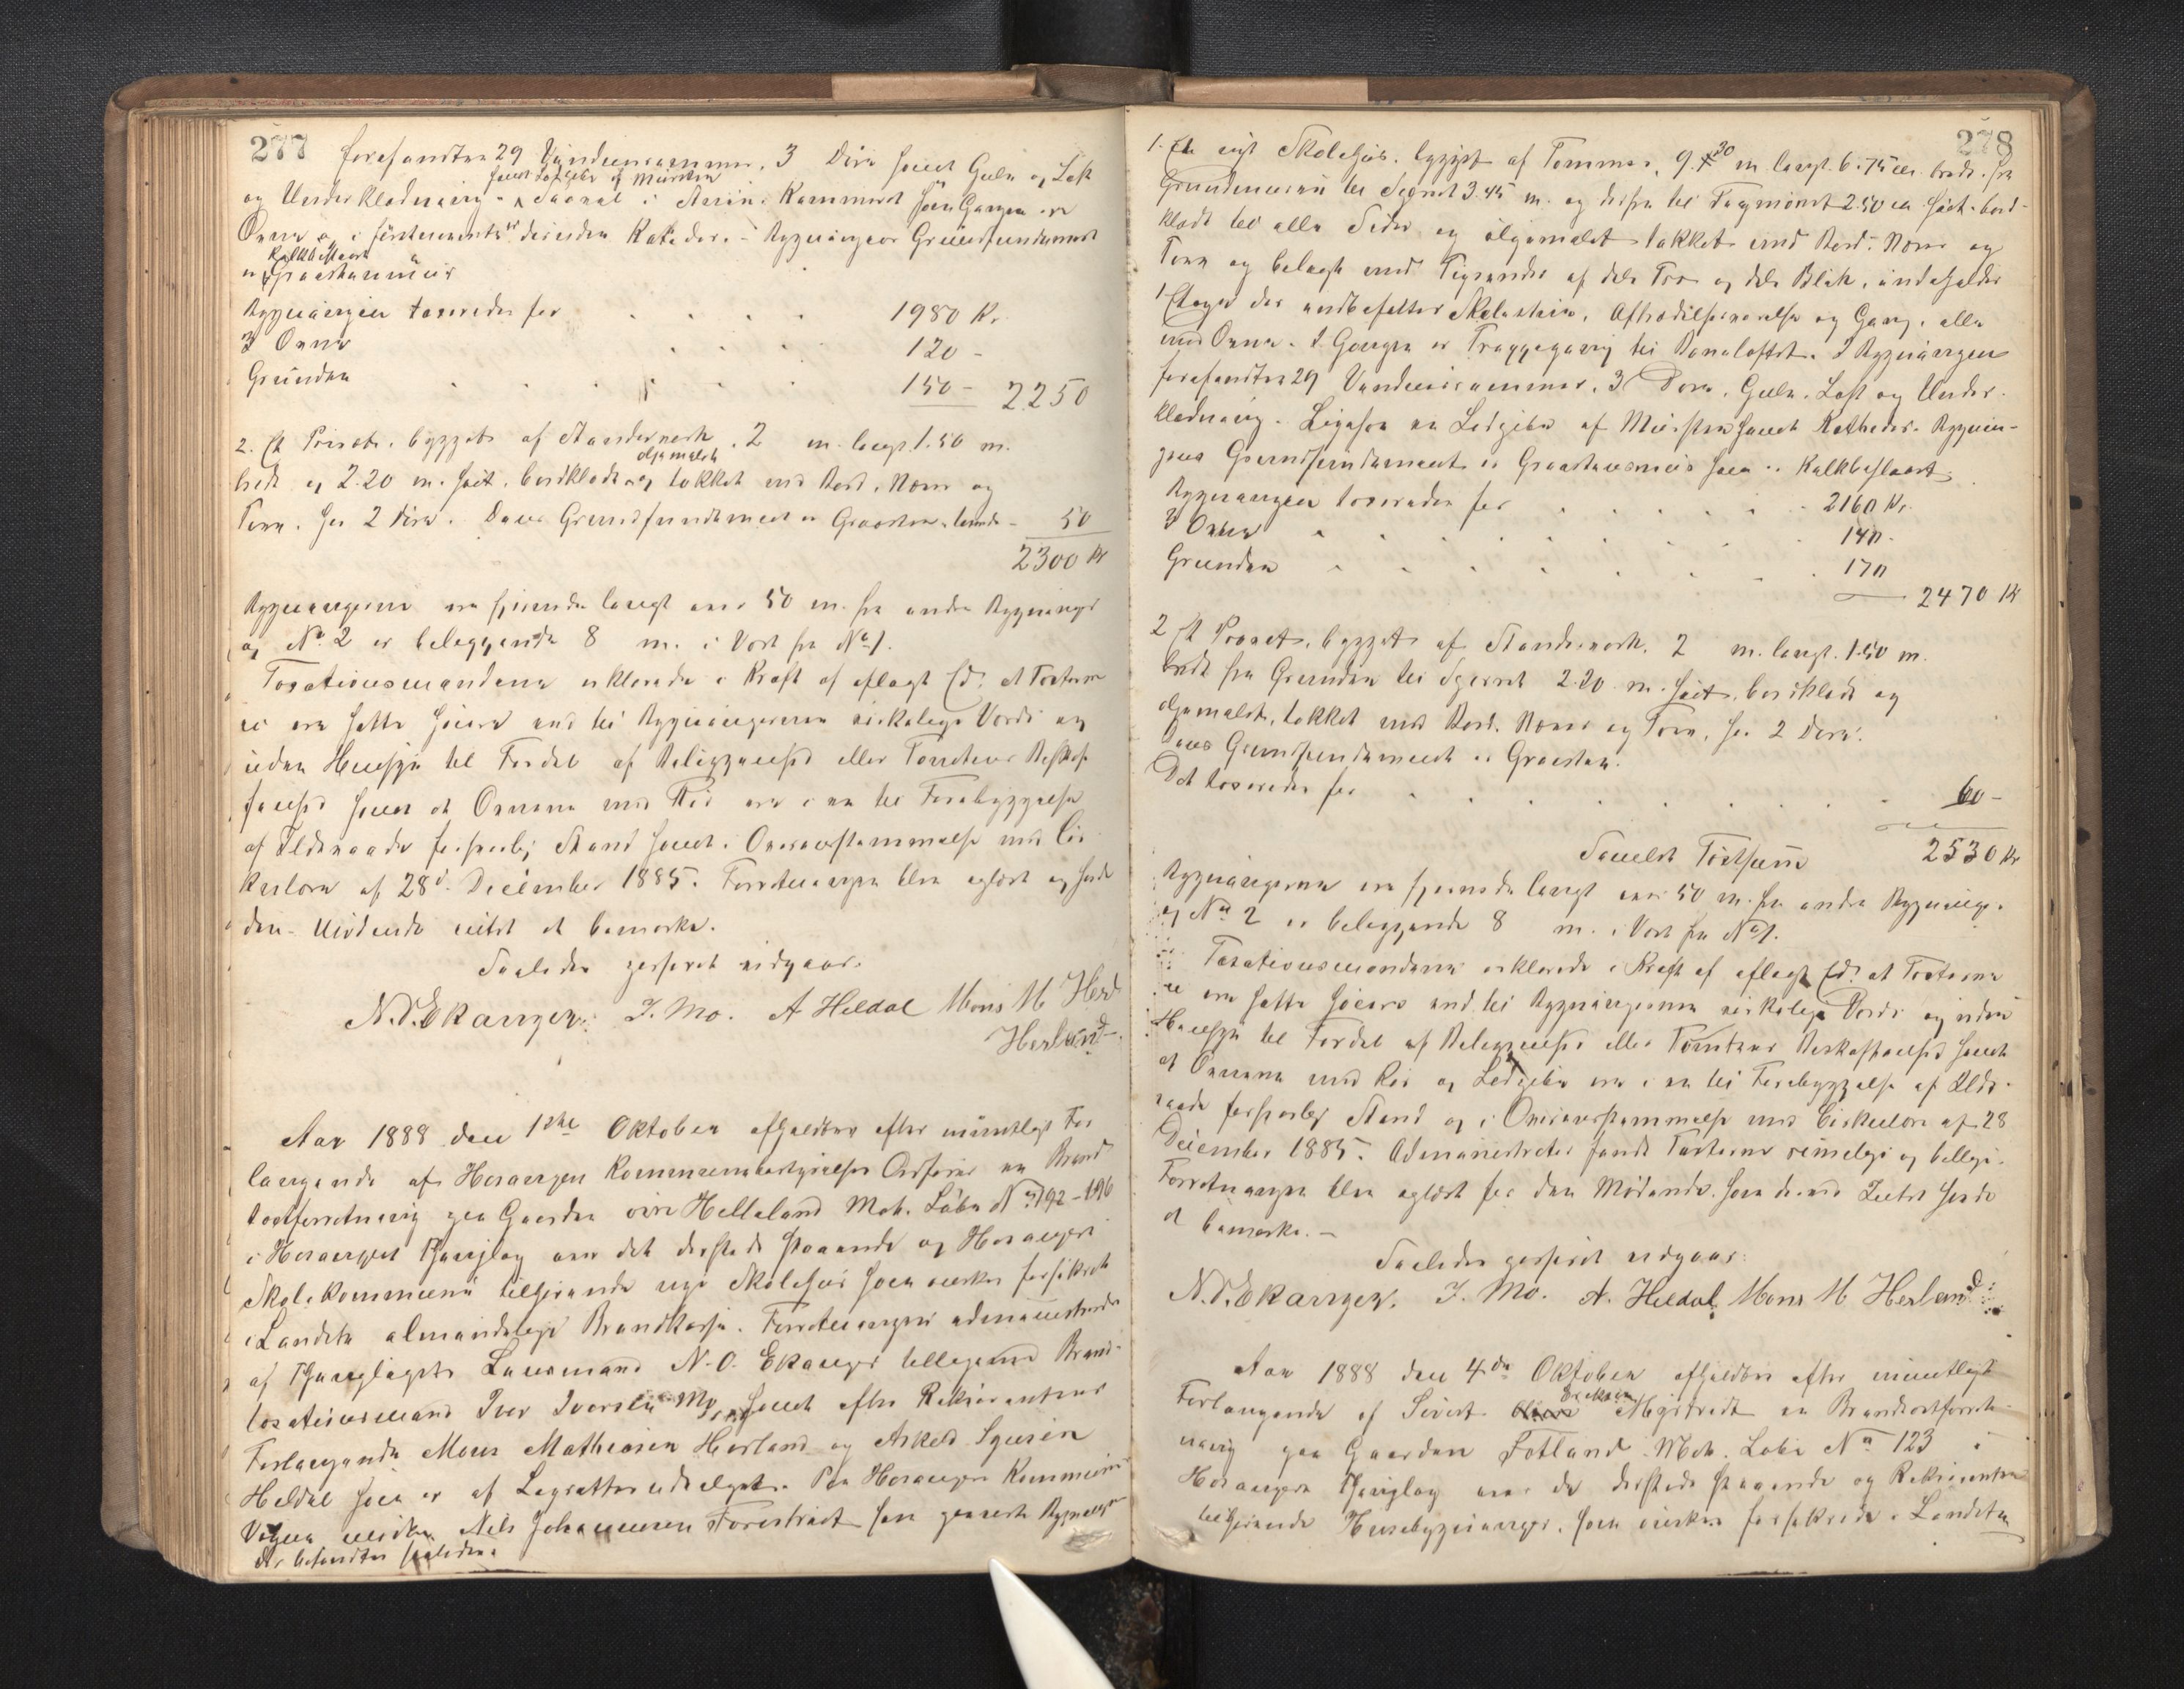 277
forefandtes 29 Vinduesrammer, 3 Døre samt Gulv og Loft
samt Ledpibe af Mursten
og Underklædning. Saavel i Stuen, Kammeret som Gangen er
Ovne og i førstnævnte desuden Katheder. - Bygningens Grundfundament
kalkbeslaaet
er Graastensmuur
Bygningen taxeredes for . . . . 1980 Kr.
3 Ovne . . . . 120 -
Grunden . . . . . . 150 - 2250
2. Et Privet, bygget af Standerværk, 2 m. langt 1.50 m.
oljemalet
bredt og 2.20 m. høit, bordklædt og takket med Bord, Næver og
Torv. Har 2 Døre. Dens Grundfundament er Graasten, taxeredes - 50
2300 Kr
Bygningerne ere fjernede langt over 50 m. fra andre Bygninger
og No 2 er beliggende 8 m. i Vest fra No 1.
Taxationsmændene erklærede i Kraft af aflagt Ed, at Taxterne
ei ere satte høiere end til Bygningernes virkelige Værdi og
uden Hensyn til Fordel af Beliggenhed eller Tomtens Beskaf-
fenhed samt at Ovnene med Rør ere i en til Forebyggelse
af Ildsvaade forsvarlig Stand samt i Overensstemmelse med Cir-
kulære af 28de December 1885. Forretningen blev oplæst og havde
den Mødende intet at bemærke.
Saaledes passeret vidgaar.
N. O. Ekanger. I. Mo. A Heldal Mons M Herland
Herland.
Aar 1888 den 1ste Oktober afholdtes efter mundtligt For-
langende af Hosanger Kommunebestyrelses Ordfører en Brand-
taxtforretning paa Gaarden øvre Helleland Mat. Løbe No 192-196
i Hosanger Thinglag over det dersteds staaende og Hosanger
Skolekommune tilhørende nye Skolehus som ønskes forsikret
i Landets almindelige Brandkasse. Forretningen administreredes
af Thinglagets Lensmand N. O. Ekanger tilligemed Brand-
taxationsmand Iver Iversen Mo samt efter Rekvirentens
Forlangende Mons Mathiasen Herland og Askild Sjursen
Heldal som er af Lagretten udvalgte. Paa Hosanger Kommunes
Vegne mødte Nels Johannesen Tverstrædt som paaviste Bygningen
der befandtes saaledes:
278
1. Et nyt Skolehus, bygget af Tømmer, 9.30 m langt. 6.75 m. bredt. fra
Grundmuren til Sperret 3.45 m. og derfra til Tagmønet 2.50 m. høit. bord-
klædt til alle Sider og oljemalet, takket med Bord, Næver og
Torv og belagt med Tegrender af dels Træ og dels Blik, indeholder
1 Etage der indbefatter Skolestue, Aftrædelsesværelse og Gang, alle
med Ovne. I Gangen er Trappegang til Bonaloftet. I Bygningen
forefandtes 29 Vinduesrammer, 3 Døre, Gulv, Loft og Under-
klædning. Ligesaa en Ledpibe af Mursten samt Katheder. Bygnin-
gens Grundfundament er Graastensmuur som er kalkbeslaaet.
Bygningen taxeredes for . . . . . . 2160 Kr.
3 Ovne . . . . . . 140 -
Grunden . . . . . . 170
2470 Kr
2 Et Privet, bygget af Standerværk, 2 m. langt. 1.50 m.
bredt fra Grunden til Sperret 2.20 m. høit, bordklædt og
oljemalet, takket med Bord, Næver og Torv, har 2 Døre.
Dens Grundfundament er Graasten.
Det taxeredes for . . . . . . 60 -
Samlet Taxtsum 2530 Kr
Bygningerne ere fjernede langt over 50 m. fra andre Bygninger
og No 2 er beliggende 8 m. i Vest fra No 1.
Taxationsmændene erklærede i Kraft af aflagt Ed, at Taxterne
ei ere satte høiere end til Bygningernes virkelige Værdi og uden
Hensyn til Fordel af Beliggenhed eller Tomtens Beskaffenhed samt
at Ovnene med Rør og Ledpibe ere i en til Forebyggelse af Ilds-
vaade forsvarlig Stand og i Overensstemmelse med Cirkulære af 28
December 1885. Administrator fandt Taxterne rimelige og billige.
Forretningen blev oplæst for den Mødende som dermed Intet havde
at bemærke. -
Saaledes passeret vidgaar:
N. O. Ekanger. I. Mo. A. Heldal. Mons M Herland
Aar 1888 den 4de Oktober afholdtes efter mundtligt
Eriksen
Forlangende af Sivert Mjøstredt en Brandtaxtforret-
ning paa Gaarden Fotland Mat. Løbe No 123 i
Hosanger Thinglag over de dersteds staaende og Rekvirenten
tilhørende Huusebygninger, som ønskes forsikrede i Landets